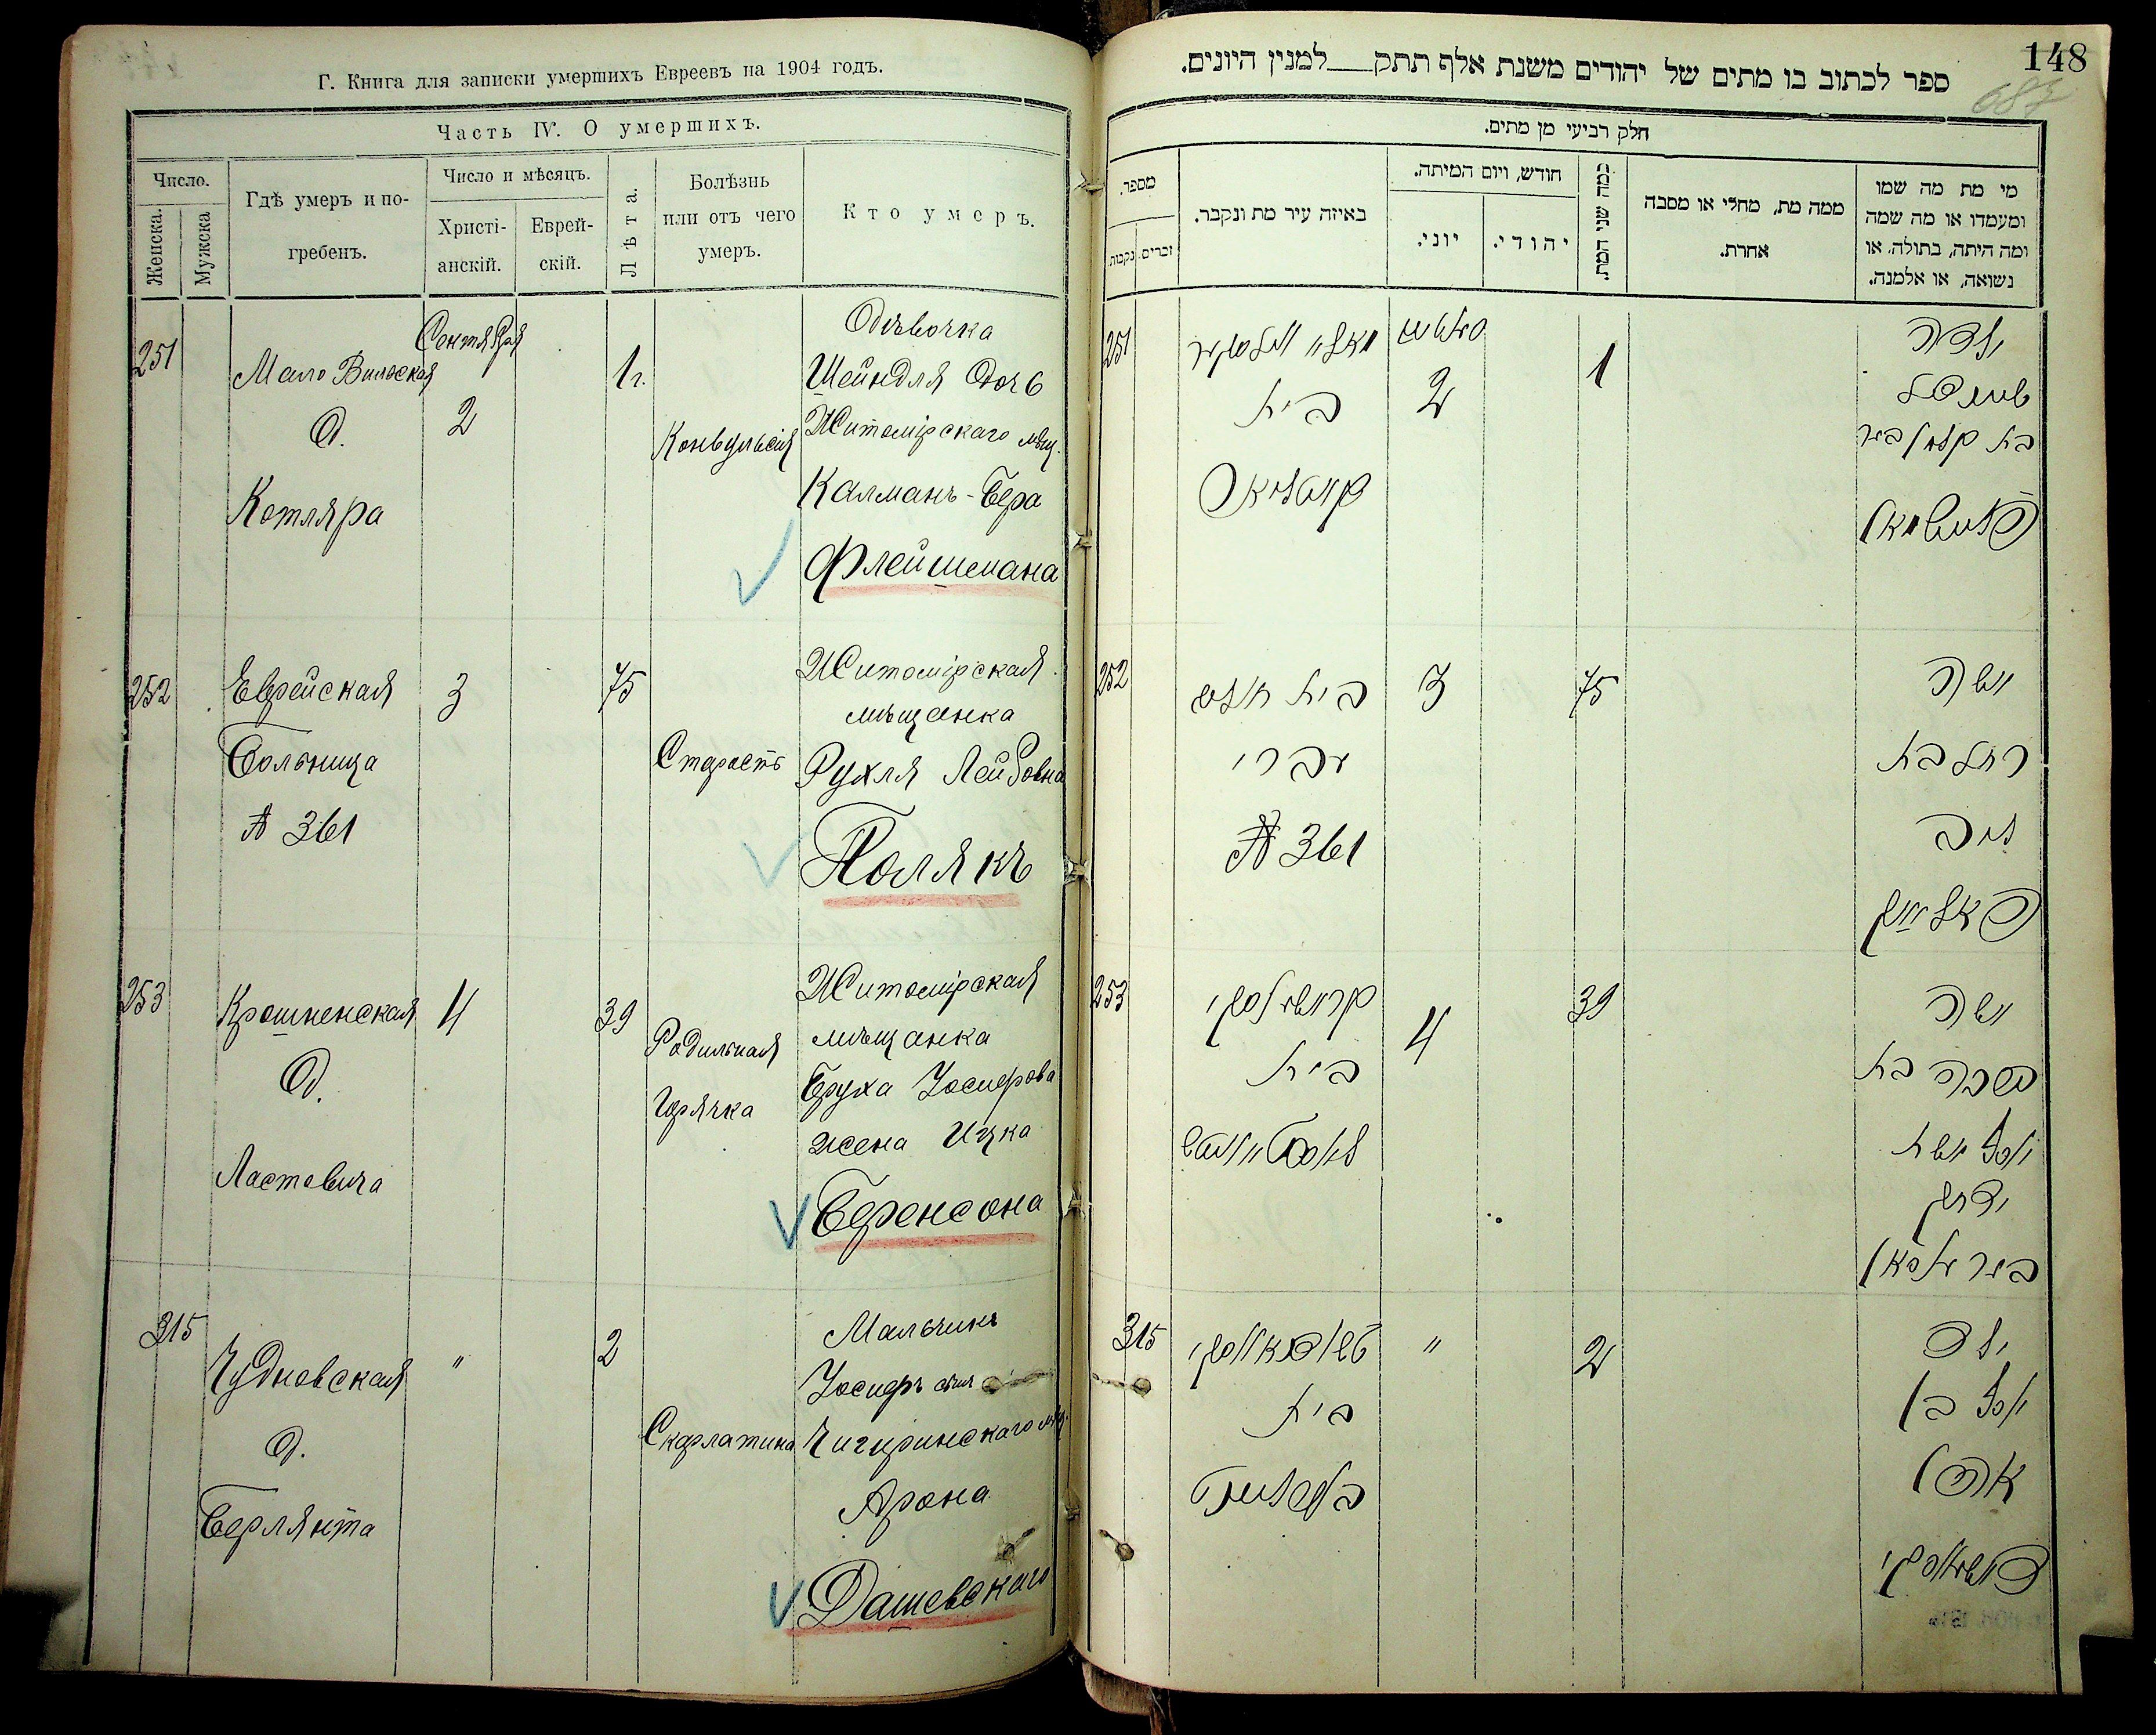 Г. Книга для записки умершихъ Евреевъ на 1904 годъ.
Часть IV. О умершихъ.
Число.
Женска.
Мужска
Гдѣ умеръ и по-
гребенъ.
Число и мѣсяцъ.
Христі-
анскій.
Еврей-
скій.
Лѣта.
Болѣзнь
или отъ чего
умеръ.
Кто умеръ.
251
Мало Вильская
д.
Котляра
Сентября
2
1 г.
Конвульсія
Дѣвочка
Шейндля дочь
Житомірскаго мѣщ.
Калманъ-Бера
Флейшмана
252
Еврейская
Больница
№ 361
3
75
Старость
Житомірская
мѣщанка
Рухля Лейбовна
Полякъ
253
Крошненская
д.
Ластовича
4
39
Родильная
горячка
Житомірская
мѣщанка
Бруха Іосифова
жена Ицка
Беренсона
315
Чудновская
д.
Берлянта
"
2
Скарлатина
Мальчикъ
Іосифъ сынъ
Чигиринскаго мѣщ.
Арона
Дашевскаго
148
ספר לכתוב בו מתים של יהודים משנת אלף תתק למנין היונים.
חלק רביעי מן מתים.
מספר.
זכרים.
נקבות
באיזה עיר מת ונקבר.
חודש, ויום המיתה.
יוני.
יהודי.
כמה שני המת.
ממה מת, מחלי או מסבה
אחרת.
מי מת מה שמו
ומעמדו או מה שמה
ומה היתה, בתולה, או
נשואה, או אלמנה.
251
בית
2
1
ילדה
שיינדל
בת קלמן בער
פליישמאן
252
בית חולים
עברי
№ 361
3
75
אשה
רחל בת
ליב
פאליאק
253
בית
4
39
אשה
ברכה בת
יוסף אשת
יצחק
בערענסאן
315
בית
"
2
ילד
יוסף בן
אהרן
דאשעווסקי